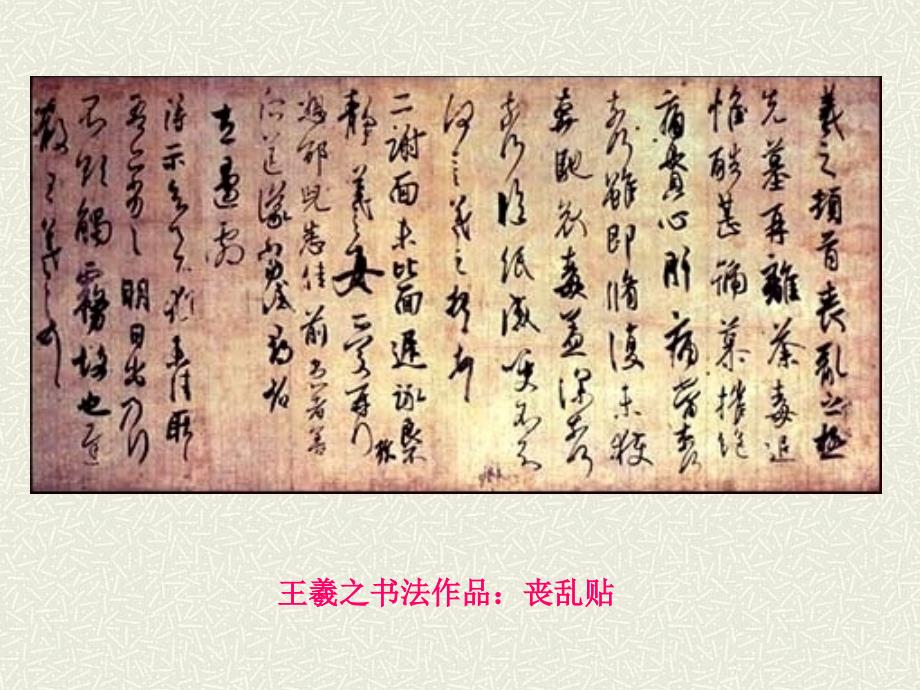 羲之頓首喪亂之極
先墓再離荼毒追
惟酷甚號慕摧絕
痛貫心肝痛當奈何
奈何雖即脩復未獲
奔馳哀毒益深奈何
奈何臨紙感哽不知
何言羲之頓首頓首
二謝面未比面遲詠良不
靜羲之女愛再拜
想邰兒悉佳前患者善
所送議當試尋省
左邊劇
得示知足下猶未佳耿耿
吾亦劣劣明日出乃行
不欲觸霧故也遲
散王羲之頓首
王羲之书法作品：丧乱贴